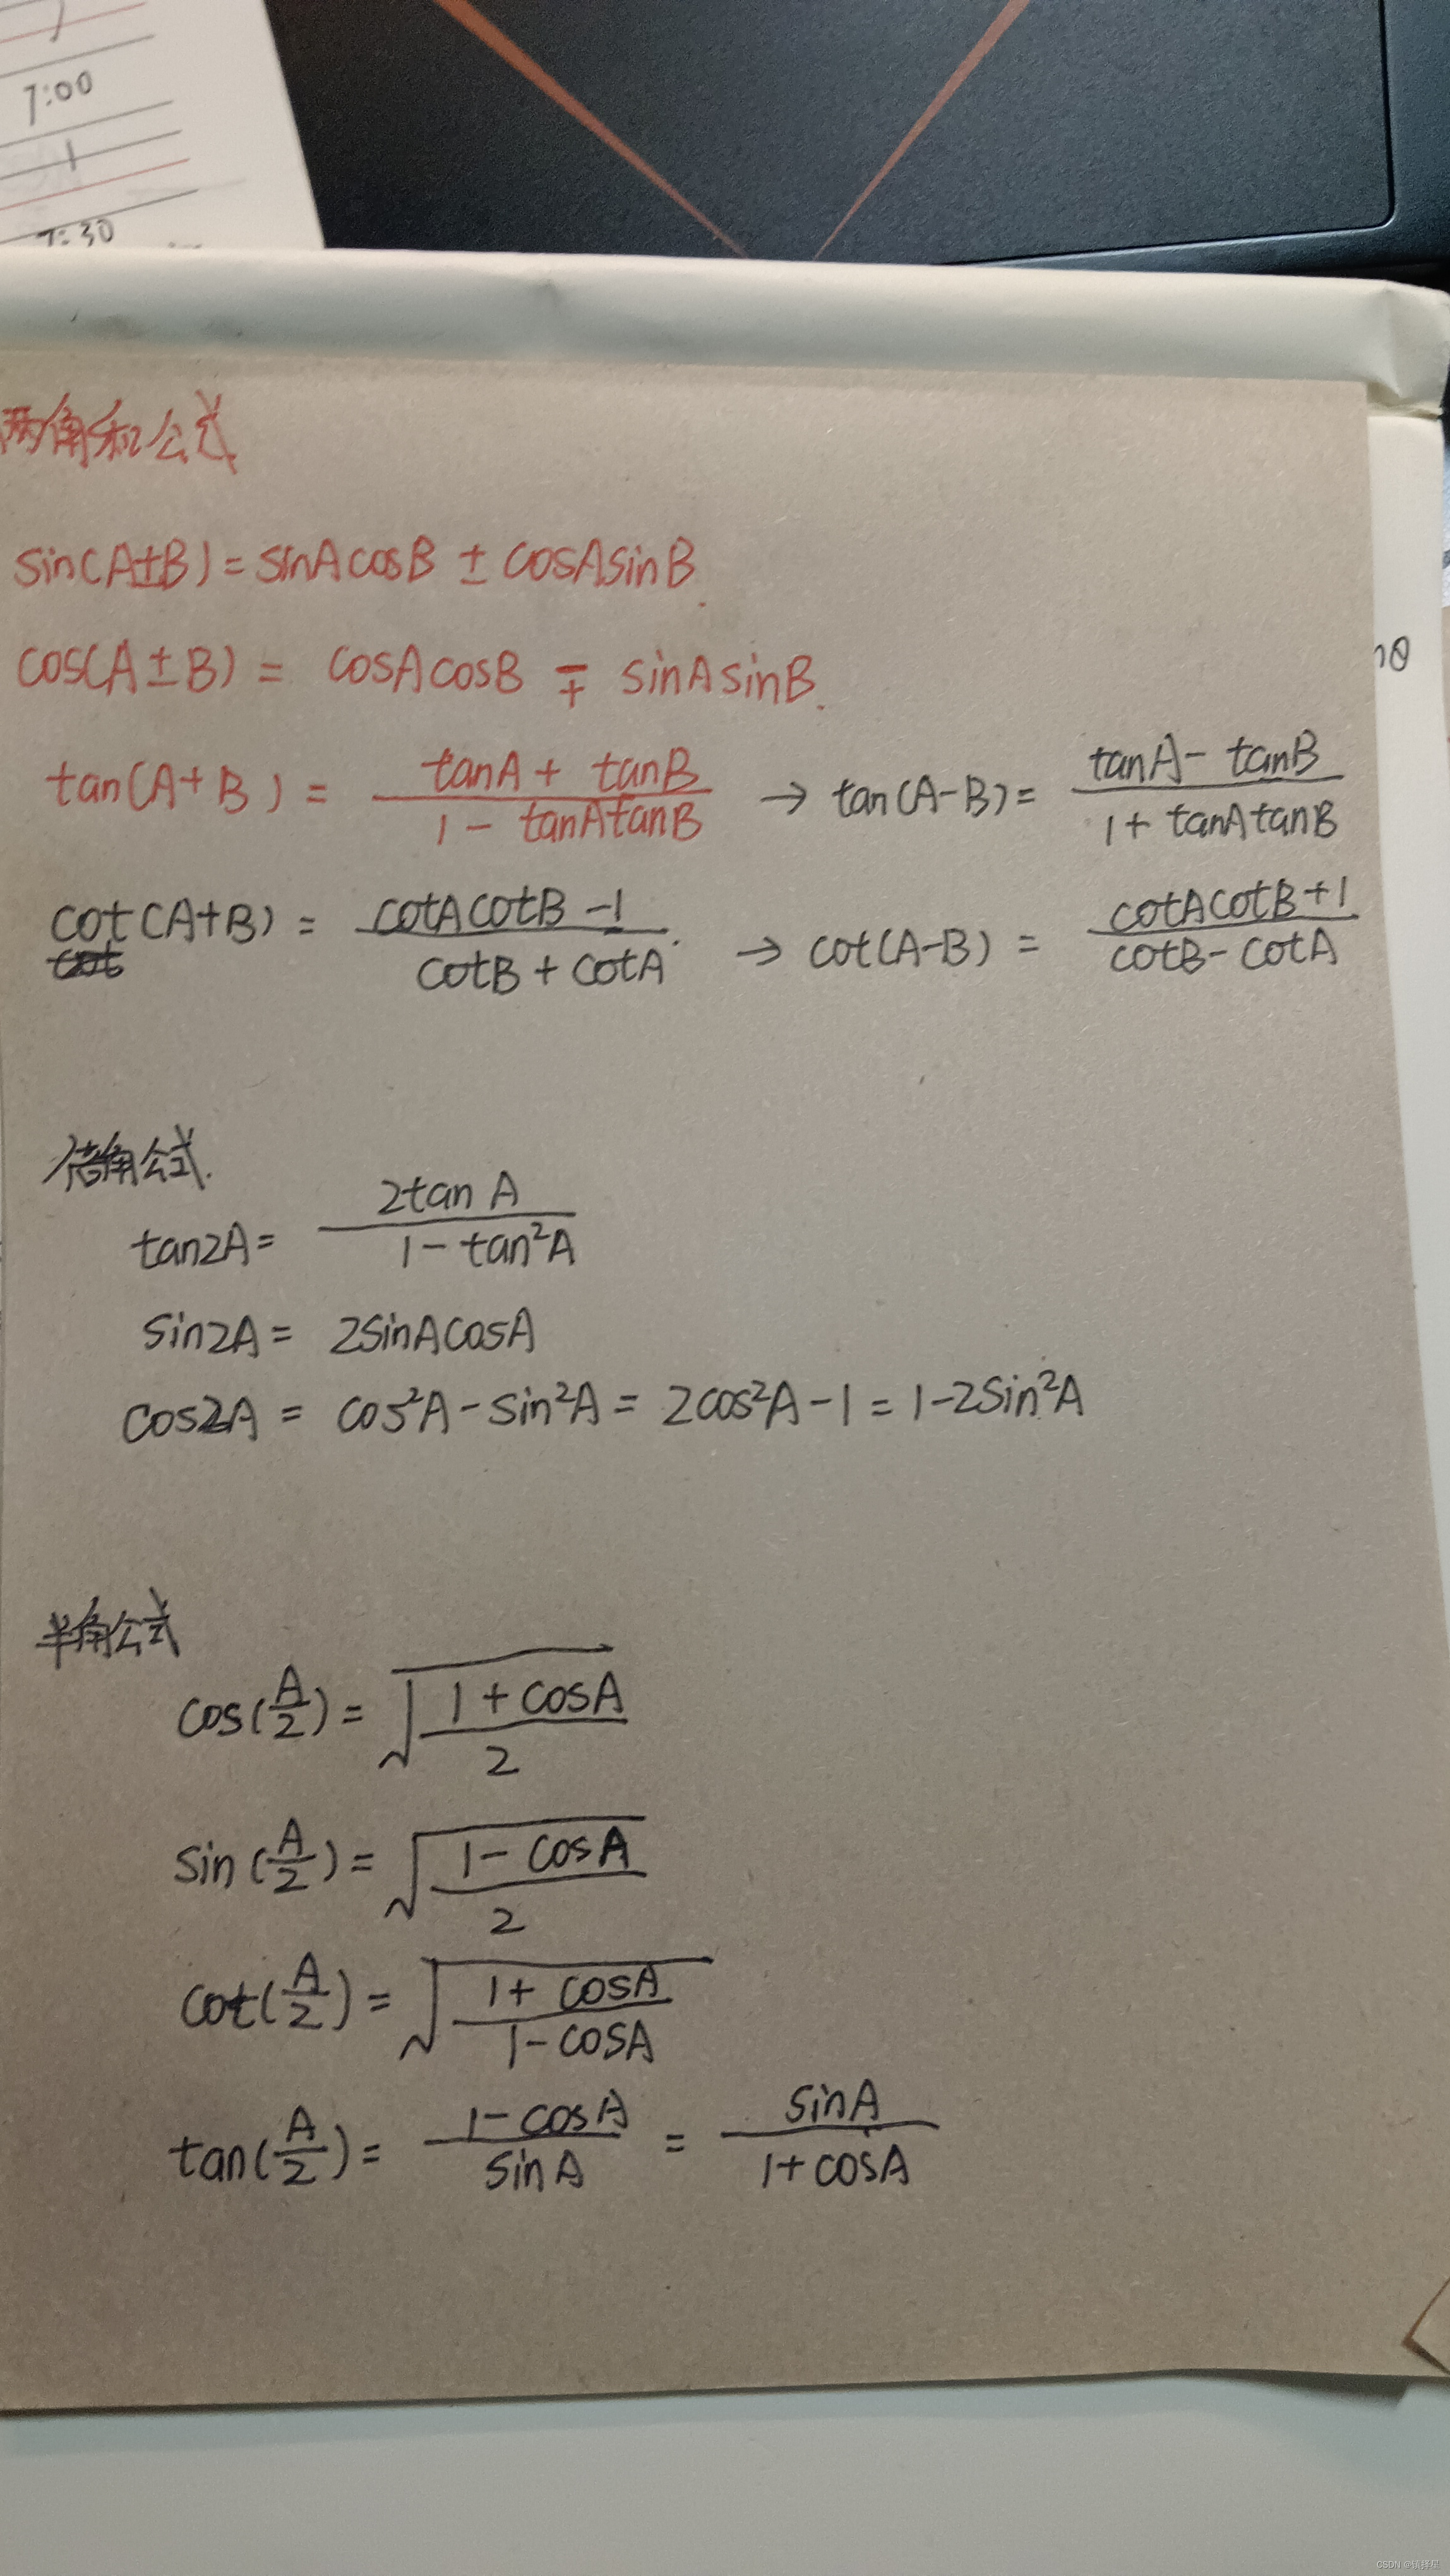 7:00
7:30
两角和公式
sin(A±B)=sinAcosB ± cosAsinB
cos(A±B) = cosAcosB ∓ sinAsinB
tan(A+B) = \frac{tanA + tanB}{1 - tanAtanB} → tan(A-B) = \frac{tanA - tanB}{1 + tanAtanB}
cot(A+B) = \frac{cotAcotB -1}{cotB + cotA} → cot(A-B) = \frac{cotAcotB+1}{cotB - cotA}
倍角公式.
tan2A = \frac{2tan A}{1 - tan²A}
sin2A = 2sinAcosA
cos2A = cos²A - sin²A = 2cos²A - 1 = 1-2sin²A
半角公式
cos(\frac{A}{2}) = \sqrt{\frac{1 + cosA}{2}}
sin(\frac{A}{2}) = \sqrt{\frac{1 - cosA}{2}}
cot(\frac{A}{2}) = \sqrt{\frac{1 + cosA}{1 - cosA}}
tan(\frac{A}{2}) = \frac{1 - cosA}{sinA} = \frac{sinA}{1 + cosA}